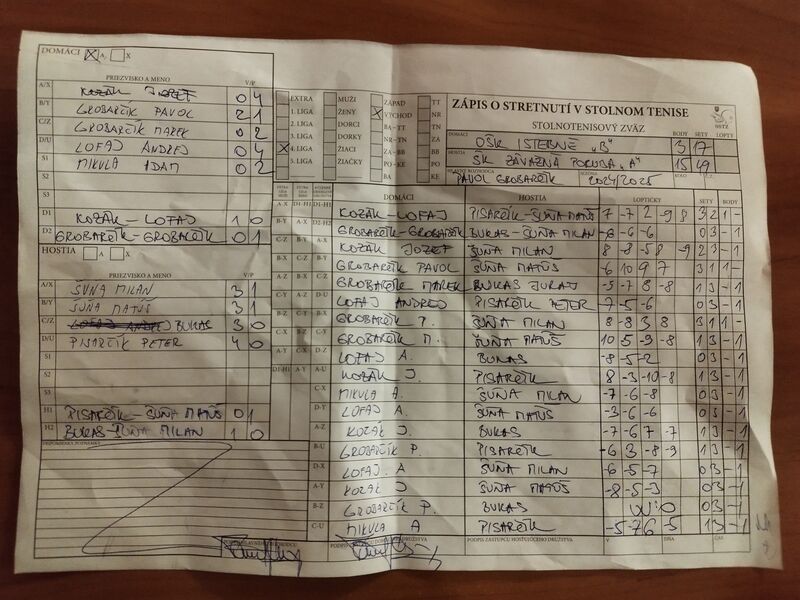 DOMÁCI A, X
PRIEZVISKO A MENO V/P
A/X KOZÁK JOZEF 0 4
B/Y GROBARČÍK PAVOL 2 1
C/Z GROBARČÍK MAREK 0 2
D/U LOFAJ ANDREJ 0 4
S1 MIKULA ADAM 0 2
S2
S3
D1 KOZÁK-LOFAJ 1 0
D2 GROBARČÍK-GROBARČÍK 0 1
HOSTIA A X
PRIEZVISKO A MENO V/P
A/X ŠUŇA MILAN 3 1
B/Y ŠUŇA MATÚŠ 3 1
C/Z BUKAS 3 0
D/U PISARČÍK PETER 4 0
S1
S2
S3
H1 PISARČÍK-ŠUŇA MATÚŠ 0 1
H2 BUKAS-ŠUŇA MILAN 1 0
PRIPOMIENKY, POZNÁMKY
EXTRA MUŽI ZÁPAD TT
1. LIGA ŽENY VÝCHOD NR
2. LIGA DORCI BA-TT TN
3. LIGA DORKY ZA
4. LIGA ŽIACI BB
5. LIGA ŽIAČKY PO-KE KE
ZÁPIS O STRETNUTÍ V STOLNOM TENISE
STOLNOTENISOVÝ ZVÄZ
DOMÁCI BODY SETY LOPTY
OŠK ISTEBNÉ "B" 3 17
HOSTIA
SK ZÁVAŽNÁ PORUBA "A" 15 49
HLAVNÝ ROZHODCA SEZÓNA KOLO
PAVOL GROBARČÍK 2024/2025
DOMÁCI HOSTIA LOPTIČKY SETY BODY
KOZÁK-LOFAJ PISARČÍK-ŠUŇA MATÚŠ 7 -7 2 -9 8 3 2 1 -
GROBARČÍK-GROBARČÍK BUKAS-ŠUŇA MILAN -6 -6 -6 0 3 - 1
KOZÁK JOZEF ŠUŇA MILAN 8 -8 -5 8 -9 2 3 - 1
GROBARČÍK PAVOL ŠUŇA MATÚŠ -6 10 9 7 3 1 1 -
GROBARČÍK MAREK BUKAS JURAJ -5 -7 8 -8 1 3 - 1
LOFAJ ANDREJ PISARČÍK PETER -7 -5 -6 0 3 - 1
GROBARČÍK P. ŠUŇA MILAN 8 -8 3 8 3 1 1 -
GROBARČÍK M. ŠUŇA MATÚŠ 10 -5 -9 -8 1 3 - 1
LOFAJ A. BUKAS -8 -5 -2 0 3 - 1
KOZÁK J. PISARČÍK 8 -3 -10 -8 1 3 - 1
MIKULA A. ŠUŇA MILAN -7 -6 -8 0 3 - 1
LOFAJ A. ŠUŇA MATÚŠ -3 -6 -6 0 3 - 1
KOZÁK J. BUKAS -7 -6 7 -7 1 3 - 1
GROBARČÍK P. PISARČÍK -6 3 -8 -9 1 3 - 1
LOFAJ. A ŠUŇA MILAN -6 -5 -7 0 3 - 1
KOZÁK J ŠUŇA MATÚŠ -8 -5 -3 0 3 - 1
GROBARČÍK P. BUKAS W:O 0 3 - 1
MIKULA A PISARČÍK -5 -7 6 -5 1 3 - 1
PODPIS ZÁSTUPCU HOSŤUJÚCEHO DRUŽSTVA V DŇA ČAS